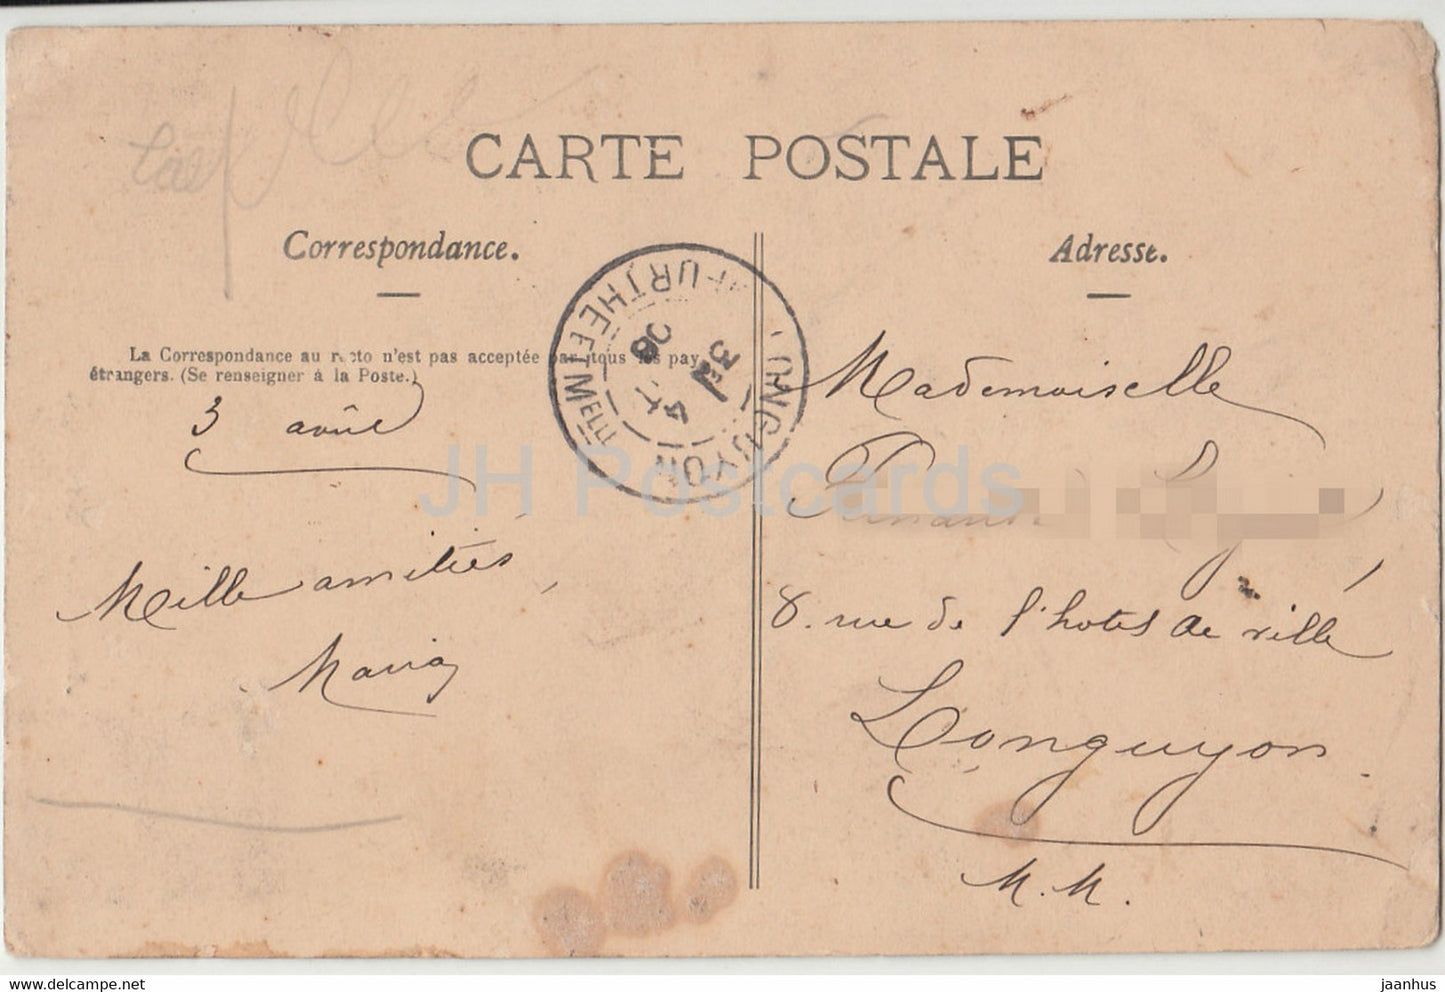 CARTE POSTALE
Correspondance.
Adresse.
La Correspondance au recto n'est pas acceptée par tous les pays
étrangers. (Se renseigner à la Poste.)
3 août
Mille amitiés
Maria
LONGUYON
MEURTHE ET MELLE
4 08
Mademoiselle
8. rue de l'hotel de ville
Longuyon
M. M.
JH Postcards
hippostcard.com
jaanhus